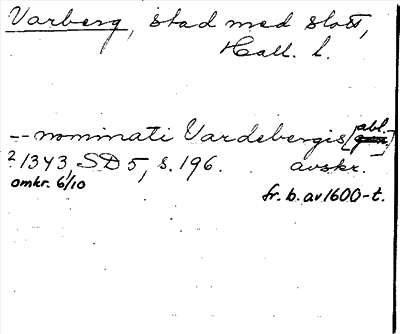 Varberg, stad med slott,
Hall. l.
-- nominati Vardebergis [abl.]
? 1343, SD 5, s. 196. avskr.
omkr. 6/10 fr. b. av 1600-t.